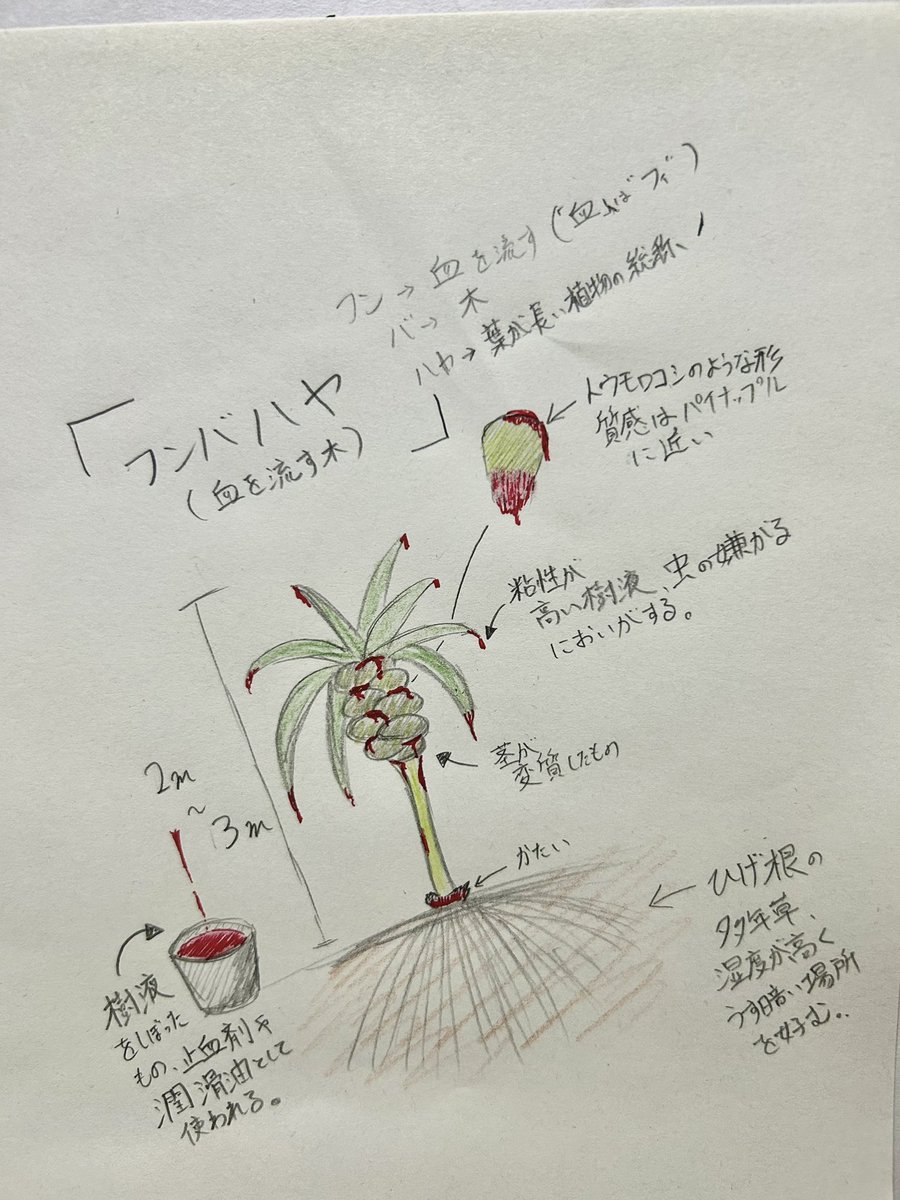 フン→血を流す(「血」は"フィ")
バ→木
ハヤ→葉が長い植物の総称
「フンバハヤ」
(血を流す木)
トウモロコシのような形
質感はパイナップル
に近い
粘性が
高い樹液、虫の嫌がる
においがする。
茎が
変質したもの
2m
~
3m
かたい
ひげ根の
多年草、
湿度が高く
うす暗い場所
を好む..
樹液
をしぼった
もの、止血剤や
潤滑油として
使われる。